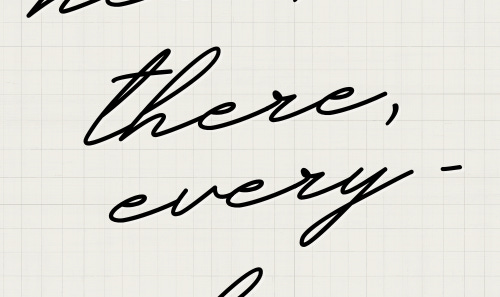 there,
every-